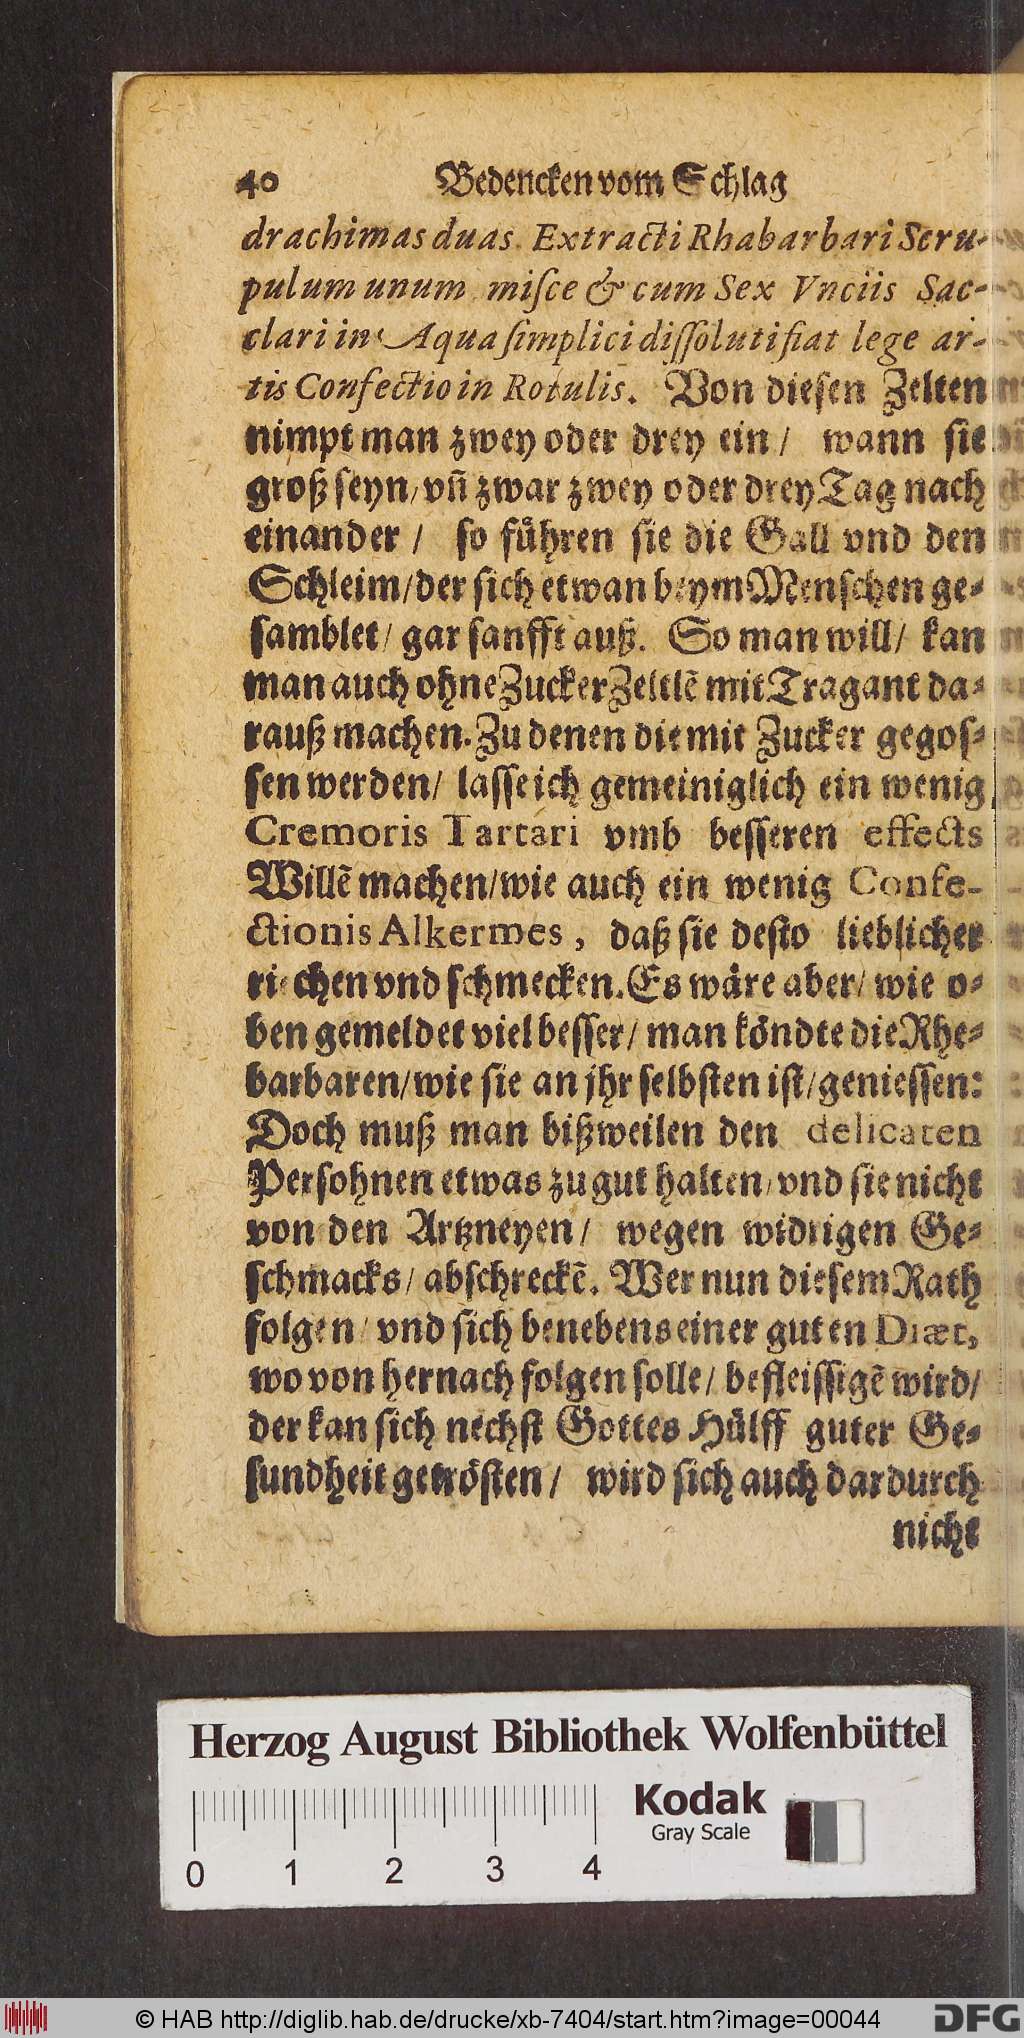 40 Bedencken vom Schlag
drachimas duas. Extracti Rhabarbari Scru-
pulum unum misce & cum Sex Vnciis Sac-
clari in Aqua simplici dissoluti fiat lege ar-
tis Confectio in Rotulis. Von diesen Zelten
nimpt man zwey oder drey ein / wann sie
groß seyn, vñ zwar zwey oder drey Tag nach
einander / so führen sie die Gall vnd den
Schleim/der sich etwan beym Menschen ge-
samblet/ gar sanfft auß. So man will/ kan
man auch ohne Zucker Zeltlẽ mit Tragant da-
rauß machen. Zu denen die mit Zucker gegos-
sen werden/ lasse ich gemeiniglich ein wenig
Cremoris Tartari vmb besseren effects
Willẽ machen/wie auch ein wenig Confe-
ctionis Alkermes, daß sie desto lieblicher
riechen vnd schmecken. Es wäre aber/ wie o-
ben gemeldet viel besser/ man köndte die Rhe-
barbaren/wie sie an jhr selbsten ist/geniessen:
Doch muß man bißweilen den delicaten
Persohnen etwas zu gut halten/vnd sie nicht
von den Artzneyen/ wegen widrigen Ge-
schmacks/ abschreckẽ. Wer nun diesem Rath
folgen/ vnd sich benebens einer guten Diæt,
wo von hernach folgen solle/ befleissigẽ wird/
der kan sich nechst Gottes Hülff guter Ge-
sundheit getrösten/ wird sich auch dardurch
nicht
Herzog August Bibliothek Wolfenbüttel
Kodak
Gray Scale
0 1 2 3 4
© HAB http://diglib.hab.de/drucke/xb-7404/start.htm?image=00044
DFG